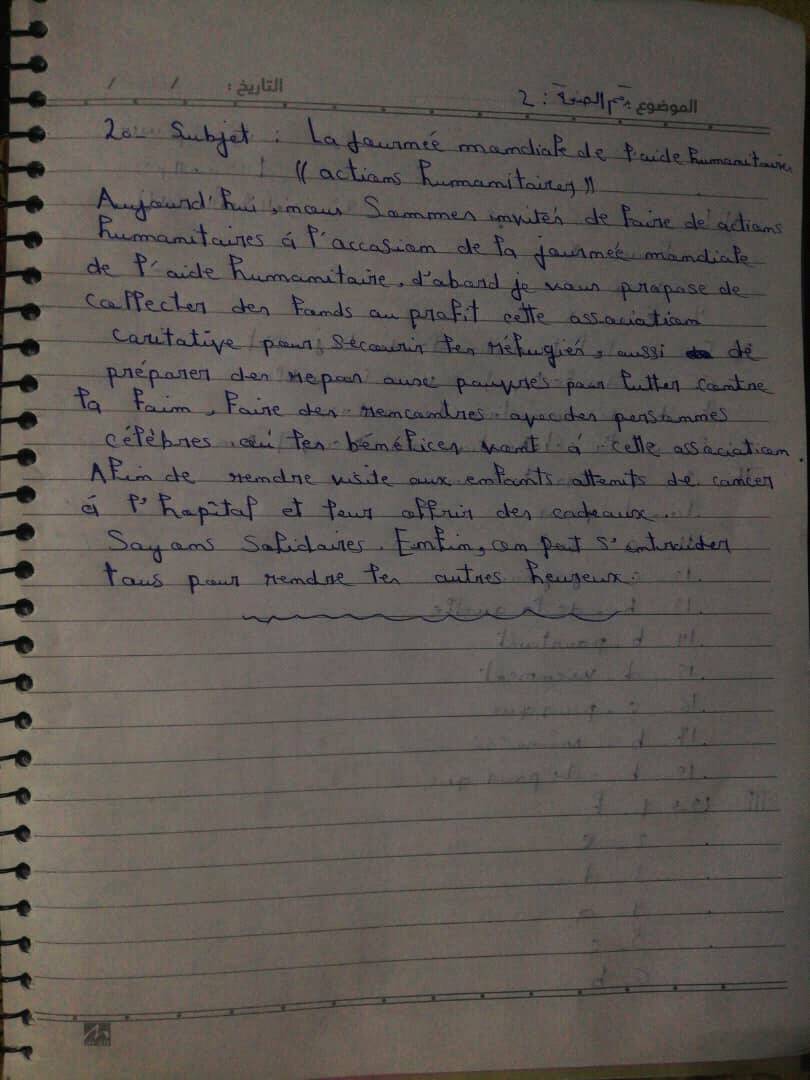 التاريخ : / /
الموضوع : رقم الصفحة : 2
20- Subjet : La journée mondiale de l'aide humanitaire
(( actions humanitaires ))
Aujourd'hui, nous Sommes invités de faire de actions
humanitaires à l'occasion de la journée mondiale
de l'aide humanitaire, d'abord je vous propose de
collecter des fonds au profit cette association
caritative pour secourir les réfugiés, aussi de
préparer des repas aux pauvres pour lutter contre
la faim, faire des rencontres avec des personnes
célèbres où les bénéfices vont à cette association.
Afin de rendre visite aux enfants attenits de cancer
à l'hopital et leur offrir des cadeaux.
Soyons Solidaires. Enfin, on peut s'entraider
tous pour rendre les autres heureux.